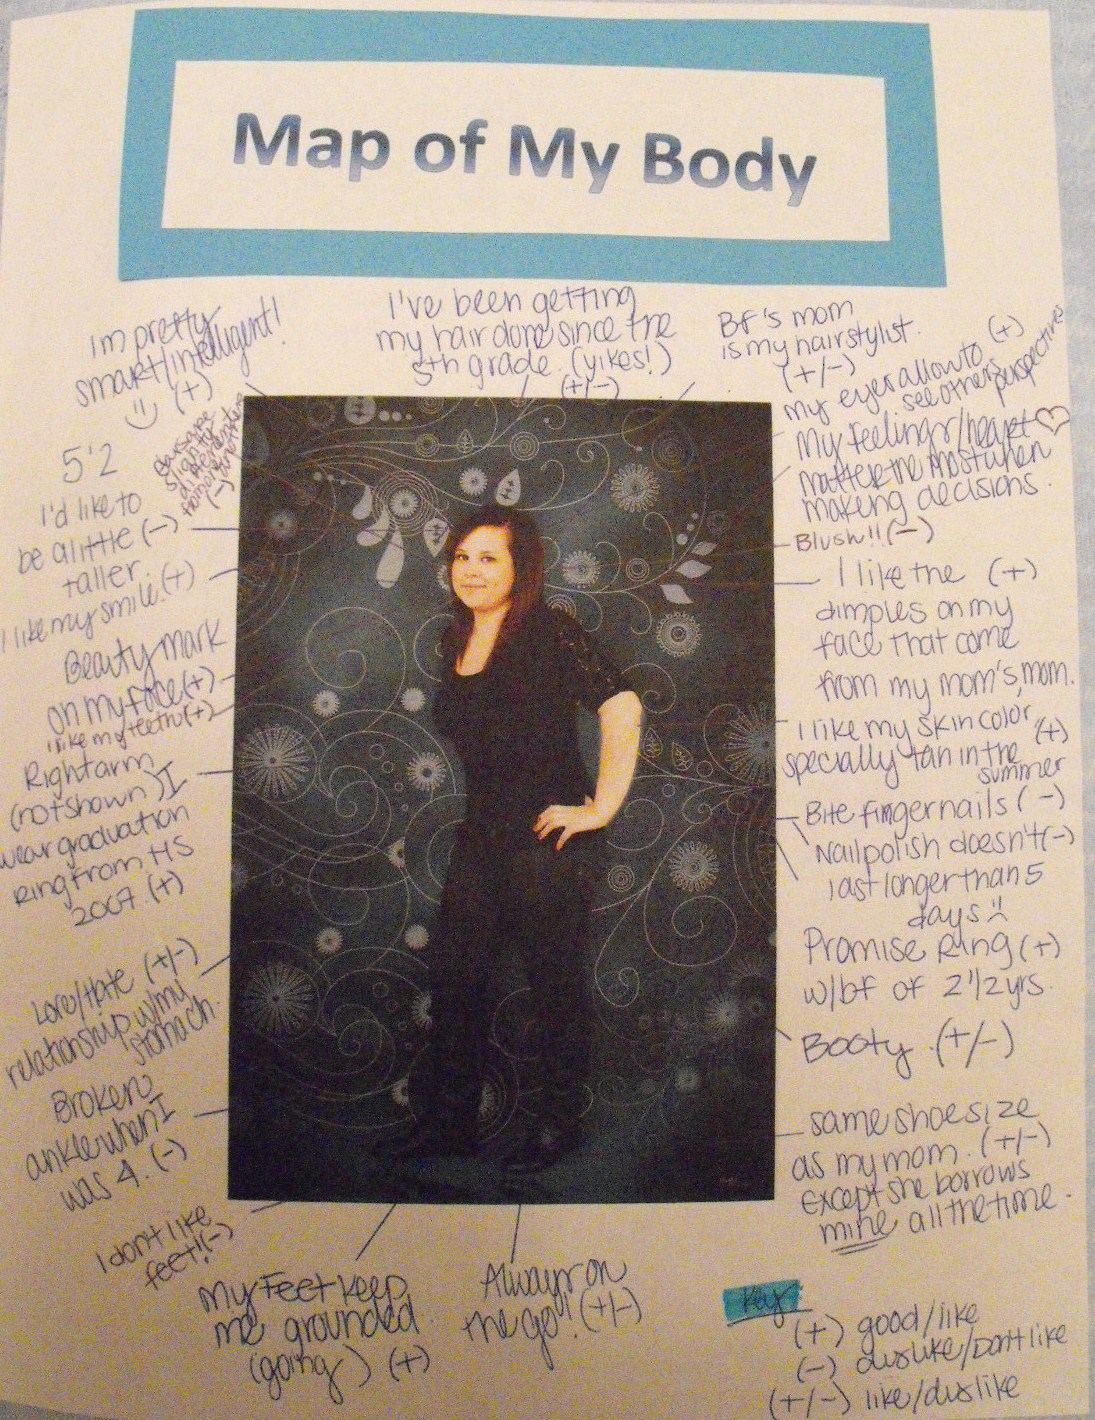 Map of My Body
I'm pretty
smart/intelligent!
(+)
I've been getting
my hair done since the
5th grade. (yikes!)
(+/-)
BF's mom
is my hairstylist.
(+/-)
my eyes allow to (+)
see others perspectives
My feelings/heart
matter the most when
making decisions.
Blush!! (-)
I like the (+)
dimples on my
face that come
from my mom's, mom.
I like my skin color,
specially tan in the (+)
summer
Bite fingernails (-)
Nailpolish doesn't (-)
last longer than 5
days
Promise Ring (+)
w/bf of 2 1/2 yrs.
Booty (+/-)
same shoe size
as my mom. (+/-)
Except she borrows
mine all the time.
5'2
I'd like to
be a little (-)
taller
slightly
(-)
I like my smile. (+)
Beauty mark
on my face (+)
I like my teeth (+)
Right arm
(not shown) I
wear graduation
Ring from HS
2007 (+)
Love/Hate (+/-)
relationship w/my
stomach.
Broken
ankle when I
was 4. (-)
I dont like
feet!! (-)
My Feet keep
me grounded
(going) (+)
Always on
the go! (+/-)
Key
(+) good/like
(-) dislike/Dont like
(+/-) like/dislike